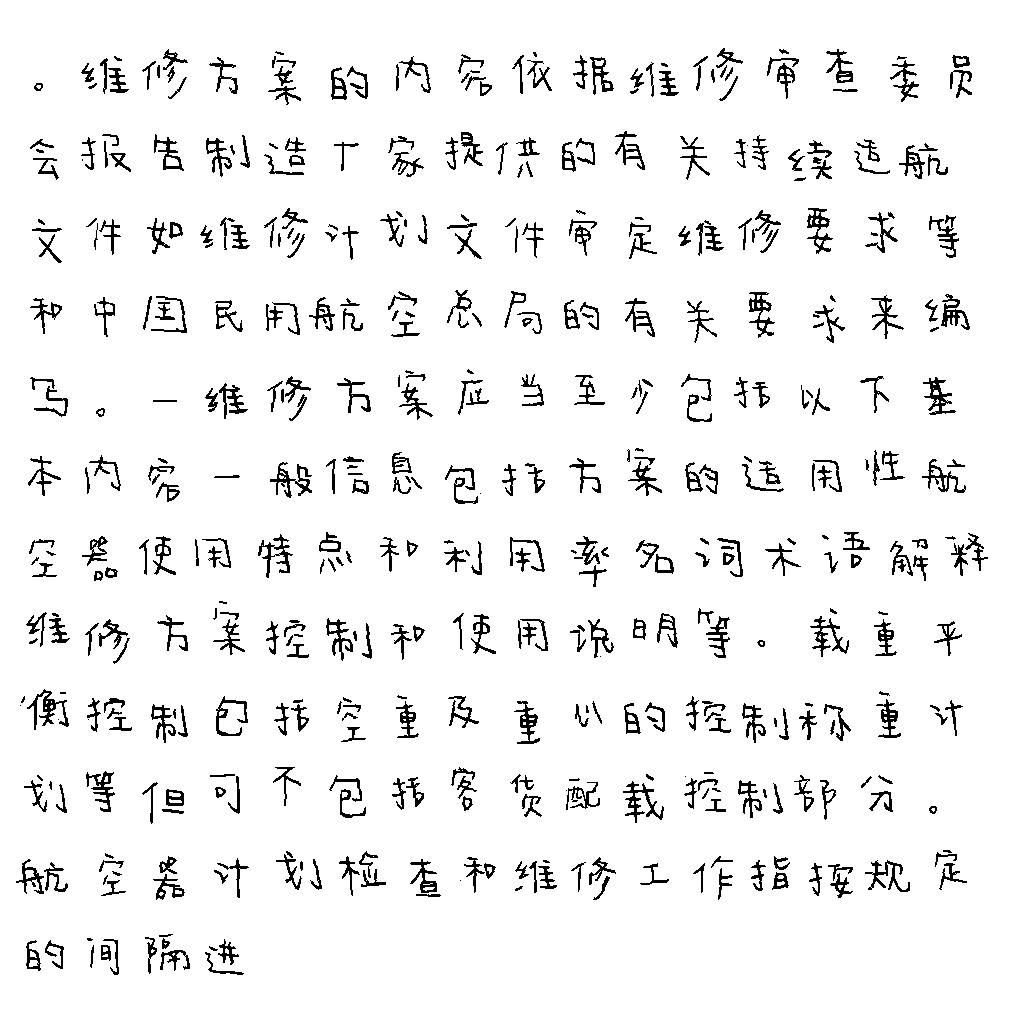 。维修方案的内容依据维修审查委员
会报告制造厂家提供的有关持续适航
文件如维修计划文件审定维修要求等
和中国民用航空总局的有关要求来编
写。一维修方案应当至少包括以下基
本内容一般信息包括方案的适用性航
空器使用特点和利用率名词术语解释
维修方案控制和使用说明等。载重平
衡控制包括空重及重心的控制称重计
划等但可不包括客货配载控制部分。
航空器计划检查和维修工作指按规定
的间隔进